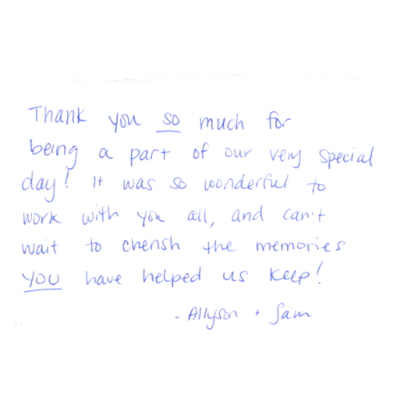 Thank you so much for
being a part of our very special
day! It was so wonderful to
work with you all, and can't
wait to cherish the memories
you have helped us keep!
- Allyson + Sam